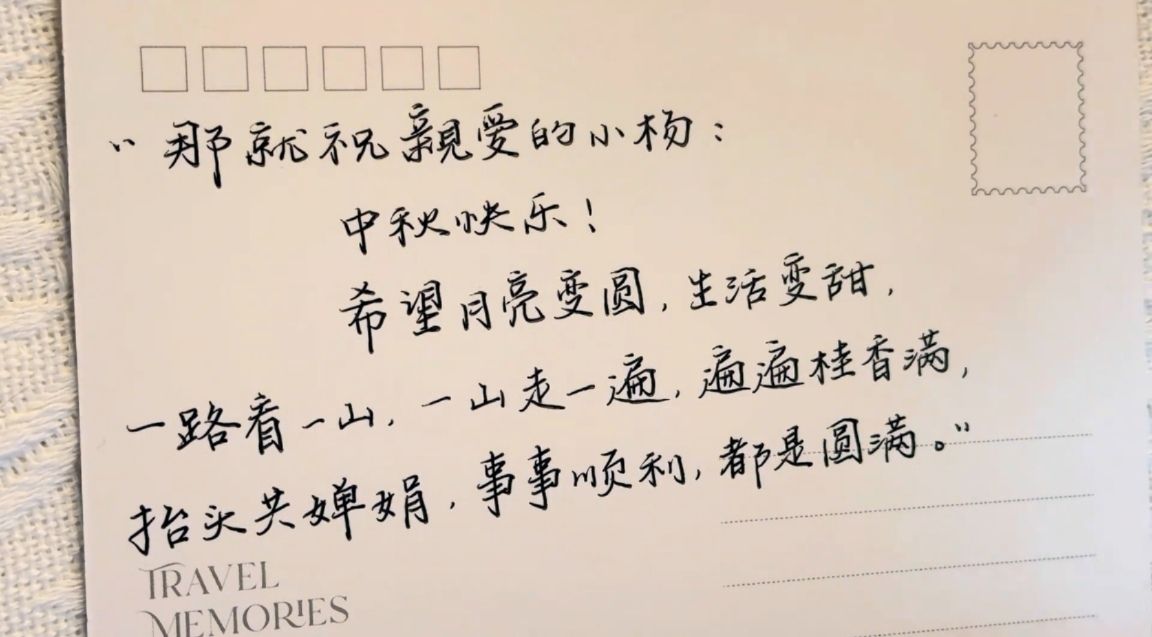 “那就祝親愛的小杨：
中秋快乐！
希望月亮变圆，生活变甜，
一路看一山，一山走一遍，遍遍桂香满，
抬头共婵娟，事事顺利，都是圆满。”
TRAVEL
MEMORIES